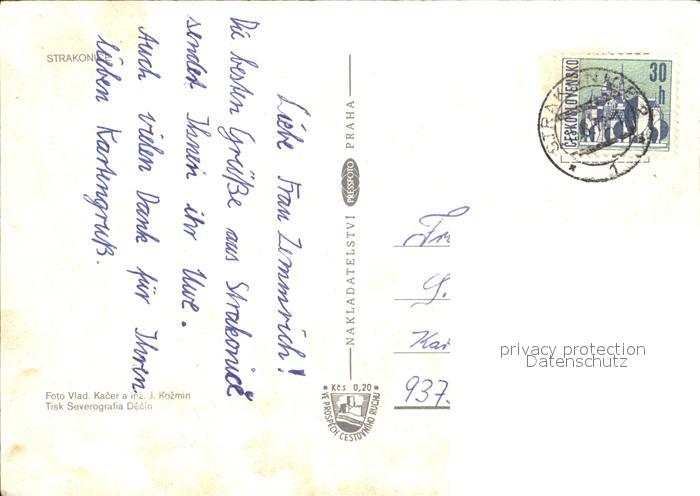 STRAKONICE
Liebe Frau Zemmrich!
Die besten Grüße aus Strakonice
sendet Ihnen ihr Uwe.
Auch vielen Dank für Ihren
lieben Kartengruß.
Foto Vlad. Kačer a inž. J. Kožmin
Tisk Severografia Děčín
NAKLADATELSTVÍ PRESSFOTO PRAHA
Kčs 0,20
VE PROSPĚCH CESTOVNÍHO RUCHU
ČESKOSLOVENSKO
30 h
STRAKONICE
1
Fr
G.
Kar
937.
privacy protection
Datenschutz